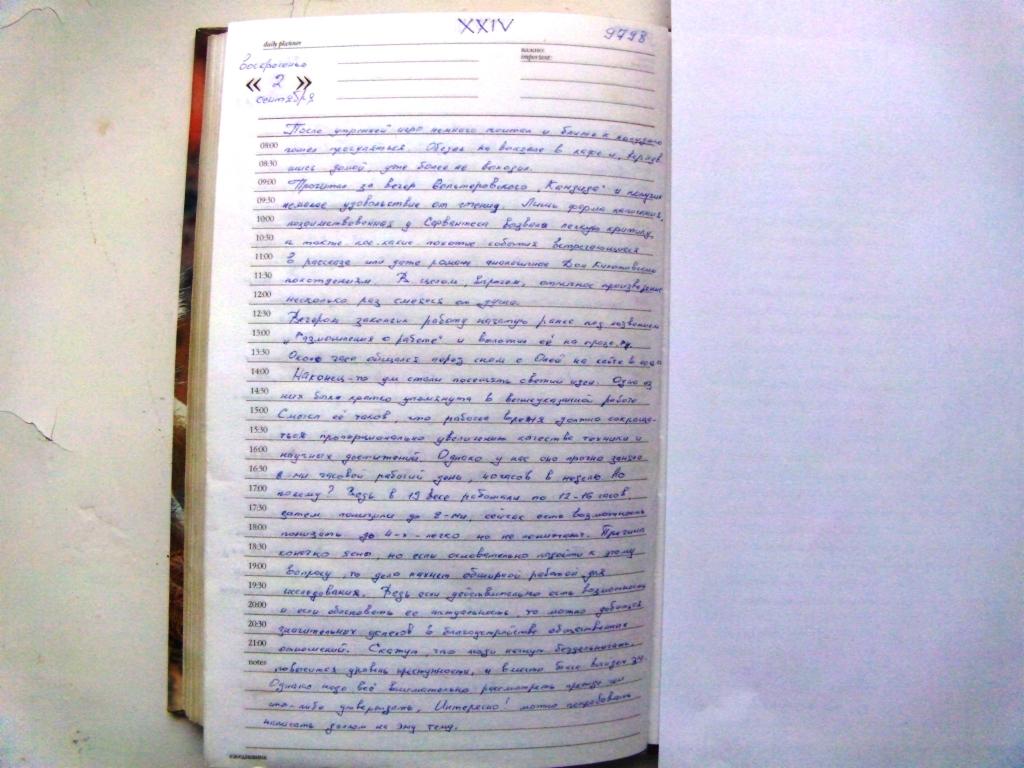 XXIV
9798
daily planner
важно:
important:
Воскресенье
« 2 »
сентября
После утренней игр немного почитал и ближе к полудню
08:00
пошел прогуляться. Обедал на вокзале в кафе и, вернув
08:30
шись домой, уже более не выходил.
09:00
Прочитал за вечер Вольтеровского „Кандида" и получил
09:30
немалое удовольствие от чтения. Лишь форма написания,
10:00
позаимствованная у Сервантеса вызвала легкую критику,
10:30
а также кое-какие похожие события встречающиеся
11:00
в рассказе или даже романе аналогичное Дон Кихотовским
11:30
похождениям. В целом, впрочем, отличное произведение
12:00
несколько раз смеялся от души.
12:30
Вечером закончил работу начатую ранее под названием
13:00
„Размышления о работе" и выложил её на проза.ру.
13:30
Около часа общался перед сном с Олей на сайте в
14:00
Наконец-то ум стали посещать светлые идеи. Одна из
14:30
них была кратко упомянута в вышеуказанной работе
15:00
Смысл её таков, что рабочее время должно сокраща-
15:30
ться пропорционально увеличению качества техники и
16:00
научных достижений. Однако у нас оно прочно
16:30
8-ми часовой рабочий день, 40 часов в неделю Но
17:00
почему? Ведь в 19 веке работали по 12-16 часов,
17:30
затем понизили до 8-ми, сейчас есть возможность
18:00
понизить до 4-х - легко но не понижают. Причина
18:30
конечно ясна, но если основательно подойти к этому
19:00
вопросу, то дело пахнет обширной работой для
19:30
исследования. Ведь если действительно есть возможность
20:00
и если обосновать ее актуальность, то можно добиться
20:30
значительных успехов в благоустройстве общественных
21:00
отношений. Скажут, что люди начнут бездельничать,
notes
повысится уровень преступности, и вместо блага
Однако надо всё внимательно рассмотреть прежде чем
что-либо утверждать. Интересно! можно попробовать
написать целом на эту тему.
ежедневник